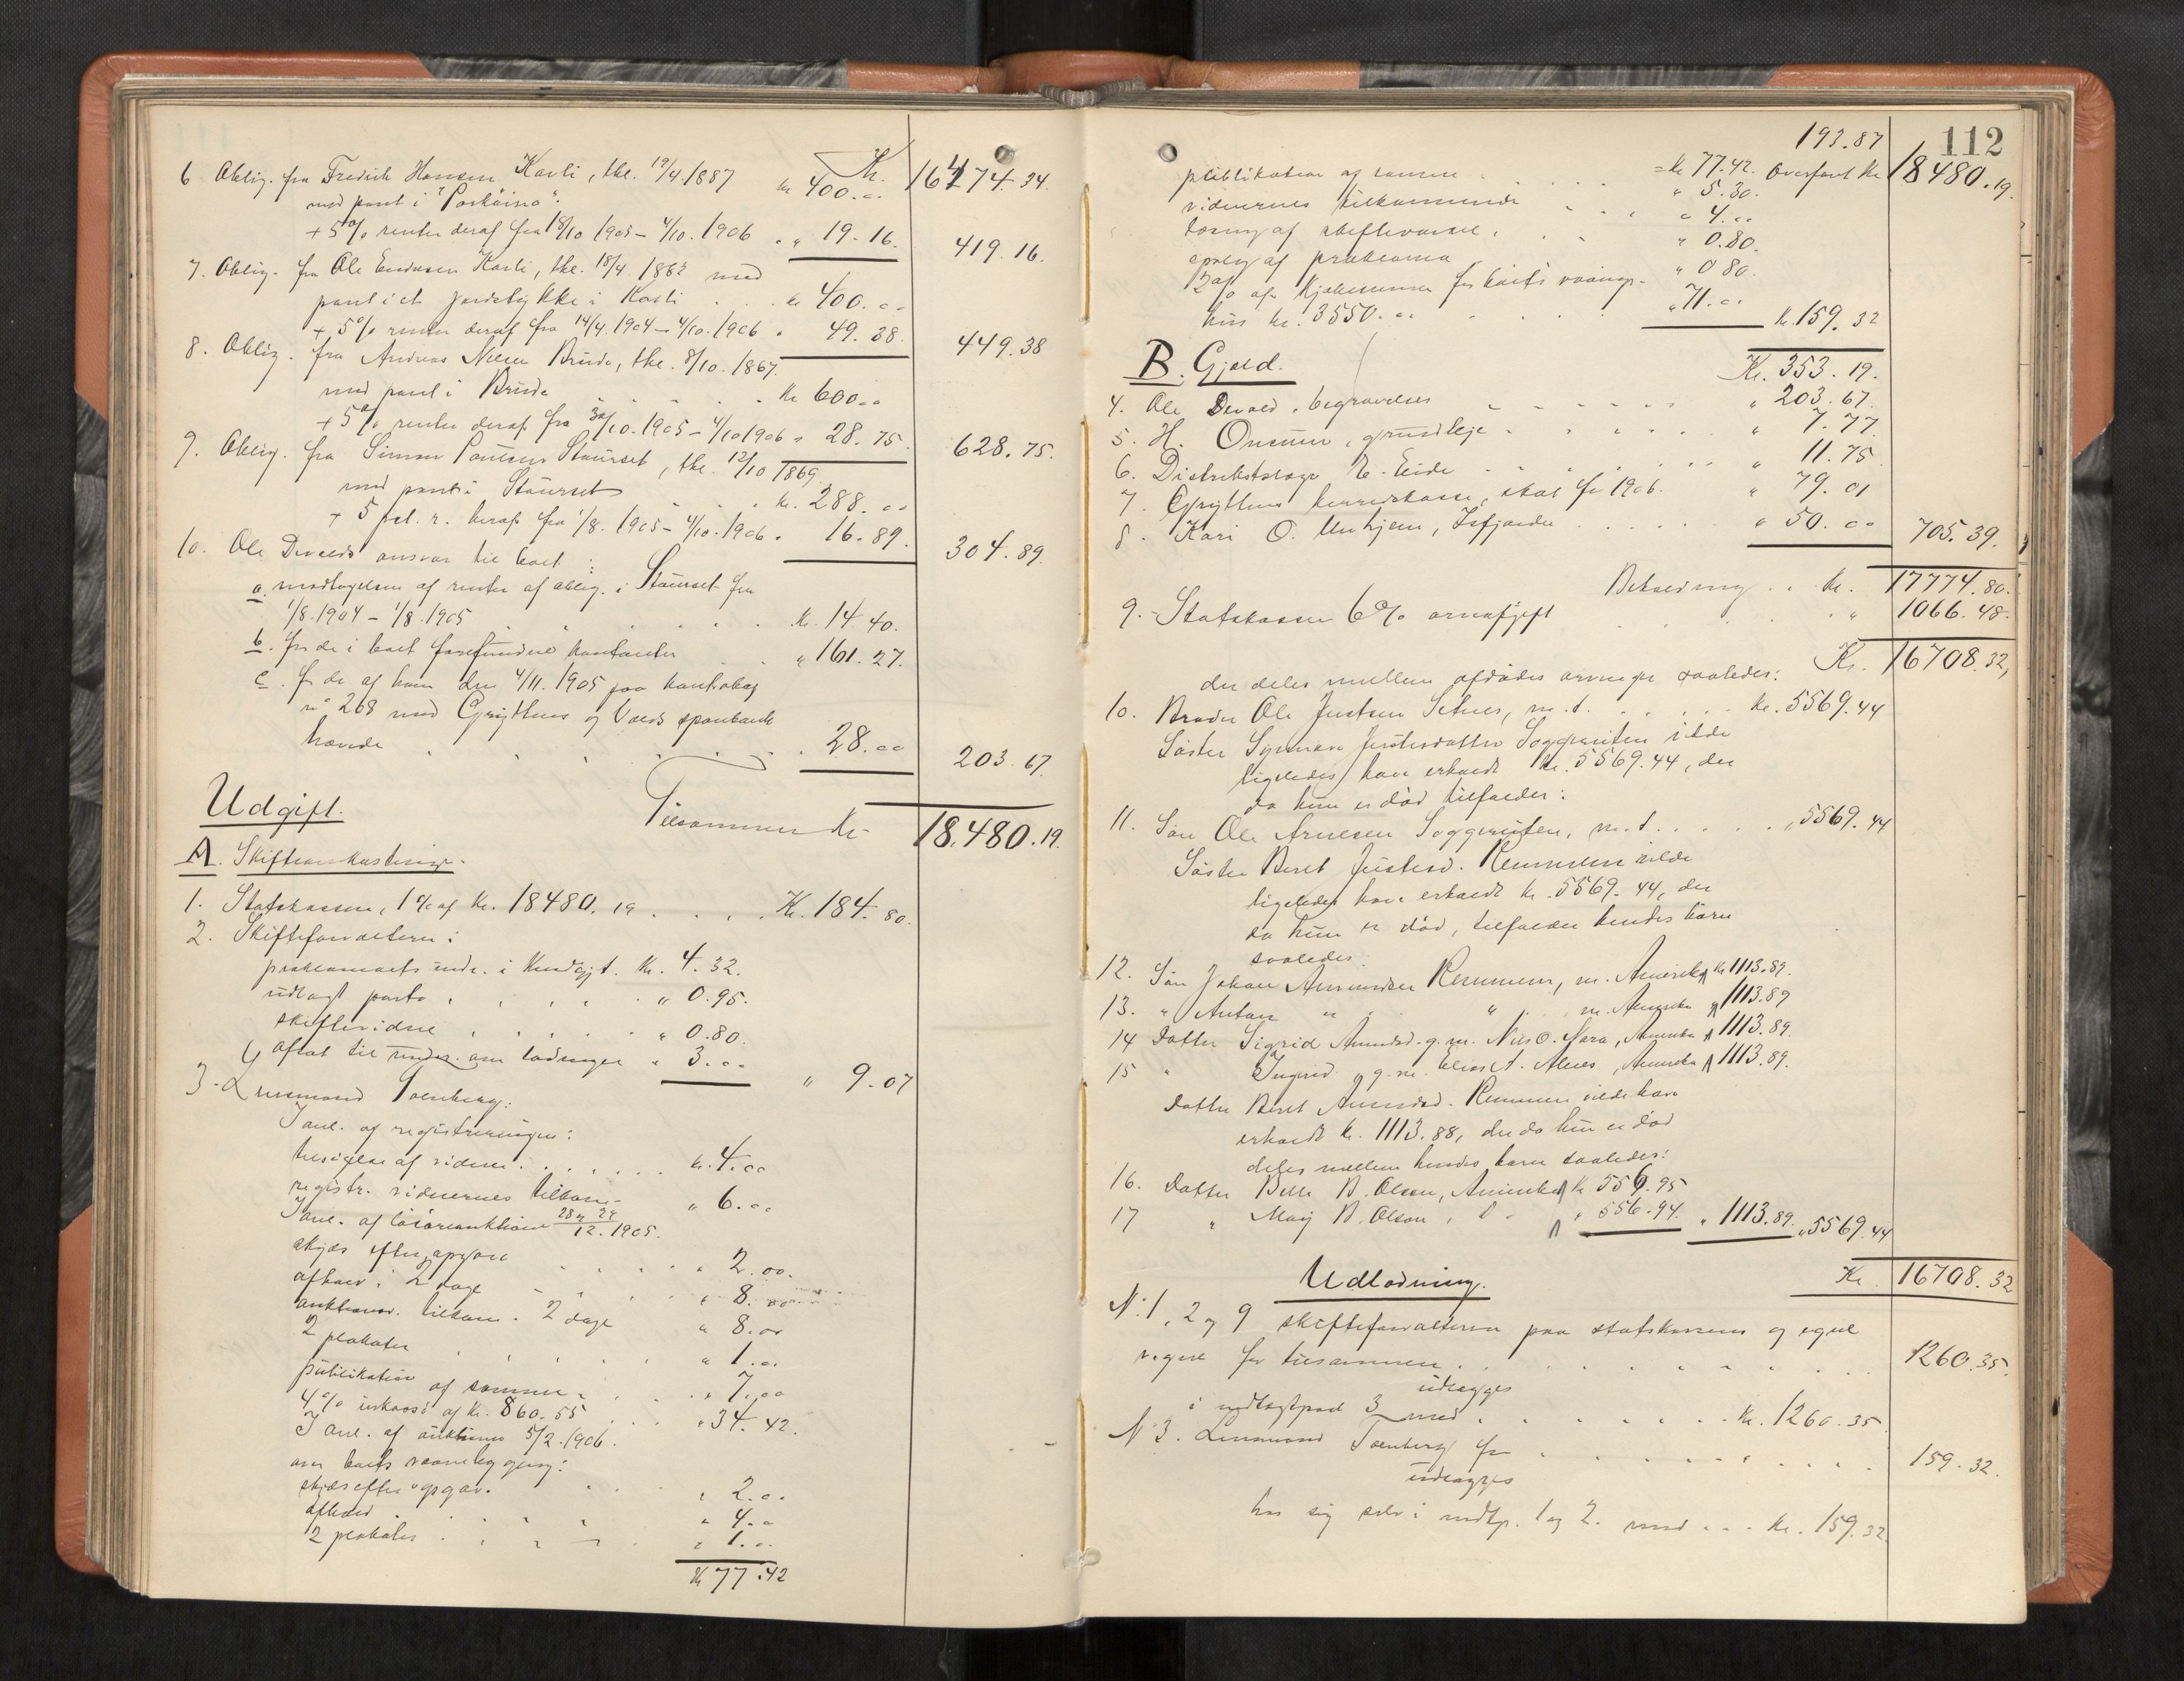 Kr. 16474.34.
6 Oblig. fra Fredrik Hansen Kavli, thl. 19/4.1887 kr 400.00
med pant i "Porkøino".
+ 5% renter deraf fra 18/10 1905 – 4/10.1906 . „ 19.16. 419.16.
7. Oblig. fra Ole Endresen Kavli, thl. 18/4 1883 med
pant i et jordstykke i Kavli . . . kr 400.00
+ 5% renter deraf fra 14/4.1904 – 4/10.1906 „ 49.38. 449.38
8. Oblig. fra Andreas Nilsen Brude, thl. 8/10.1867.
med pant i Brude . . . . Kr 600.00
+ 5% renter deraf fra 30/10.1905 – 4/10 1906 „ 28.75. 628.75.
9. Oblig. fra Simon Paulsen Staurset, thl. 12/10 1869.
med pant i Staurset . . . Kr. 288.00
+ 5 pct. r. heraf fra 1/8.1905 – 4/10.1906 . 16.89. 304.89.
10. Ole Devolds ansvar til boet:
a. modtagelsen af renter af oblig. i Staurset fra
1/8.1904 – 1/8.1905 . . . . . Kr. 14 40.
b. for de i boet forefundne kontanter . . „ 161.27.
c. for de af ham den 4/11.1905 paa kontrabog
no 268 med Gryttens og Volds sparebank
hævede . . . . . . 28.00 203.67.
Tilsammen Kr. 18.480.19.
Udgift.
A. Skifteomkostninger.
1. Statskassen, 1% af Kr. 18480.19 . . . . Kr. 184.80.
2. Skifteforvalteren:
proklamaets indr. i Kundgjt. Kr. 4.32.
udlagt porto . . . . . „ 0.95.
skiftevidne . . . . . „ 0.80.
aflat til underr. om lodninger „ 3.00 „ 9.07
3. Lensmand Soenberg:
I anl. af registreringen:
tilsigelse af vidner . . . . . kr. 4.00
registr. vidnernes tilkom- „ 6.00
I anl. af løsøreauktion 28 og 29/12.1905.
skyds efter opgave . . . . . „ 2.00.
afhold i 2 dage . . . „ 8.00
auktionsv. tilkom. 2 dage „ 8.00
2 plakater . . . . . „ 1.00.
publikation af samme . . . „ 7.00
4% inkasso af Kr. 860.55 . . . „ 34.42.
I anl. af auktion 5/2.1906.
over boets vaaningsbygning:
skyds efter opgav. . . . „ 2.00
afhold . . . . . „ 4.00
2 plakater . . . . „ 1.00.
Kr 77.42
112
193.87
= kr 77.42. Overført Kr 18480.19.
publikation af samme . . . . „ 5.30.
vidnernes tilkommende . . . „ 4.00
løsning af skifteværdi . . . „ 0.80.
oplæsn. af proklama „ 0 80.
2% af kjøbesummen for boets vaanings-
hus kr. 3550.00 . . . . „ 71.00 Kr. 159.32
Kr. 353.19.
B. Gjæld.
4. Ole Devold, begravelses . . . . . . „ 203.67.
5. H. Onsum, grundleje . . . . . . „ 7.77.
6. Distriktslæge E. Eide . . . . . . „ 11.75
7. Gryttens herredskasse, skat for 1906. „ 79.01
8. Kari O. Unhjem, Isfjorden . . . . . „ 50.00 705.39.
Beholdning . . kr. 17774.80.
9. Statskassen 6% arveafgift . . . . . „ 1066.48.
Kr. 16708.32,
der deles mellem afdødes arvinger saaledes:
10. Broder Ole Justsen Setnes, m.d. . . . . kr. 5569.44
Søster Synnøve Justesdatter Soggeruten vilde
ligeledes have erholdt kr. 5569.44, der
da hun er død tilfalder:
11. Søn Ole Arnesen Soggeruten, m.d. . . . . . „ 5569.44
Søster Beret Justesd. Remmem vilde
ligeledes have erholdt kr. 5569.44, der
da hun er død, tilfalder hendes børn
saaledes:
12. Søn Johan Amundsen Remmem, m. Amerika kr 1113.89.
13. „ Anton „ „ m. Amerika „ 1113.89
14 Datter Sigrid Amundsd. g.m. Nils O. Nora, Amerika „ 1113.89.
15 „ Ingrid „ g.m. Elias A. Alnes, Amerika „ 1113.89.
Datter Beret Amundsd. Remmem vilde have
erholdt kr. 1113.88, der da hun er død
deles mellem hendes børn saaledes:
16. Datter Belle B. Olson, Amerika kr 556.95
17 „ Maiy B. Olson, d. . „ 556.94. „ 1113.89. „ 5569.44
Kr. 16708.32
Udlodning.
No 1, 2 og 9 skifteforvalteren paa statskassens og egne
vegne for tilsammen . . . . . . . 1260.35.
udlægges
i indtægtpost 3 med . . . . . . kr. 1260.35.
No 3. Lensmand Soenberg for . . . . . . . 159.32.
udlægges
hos sig selv i indtp. 1 og 2. med . . . kr. 159.32